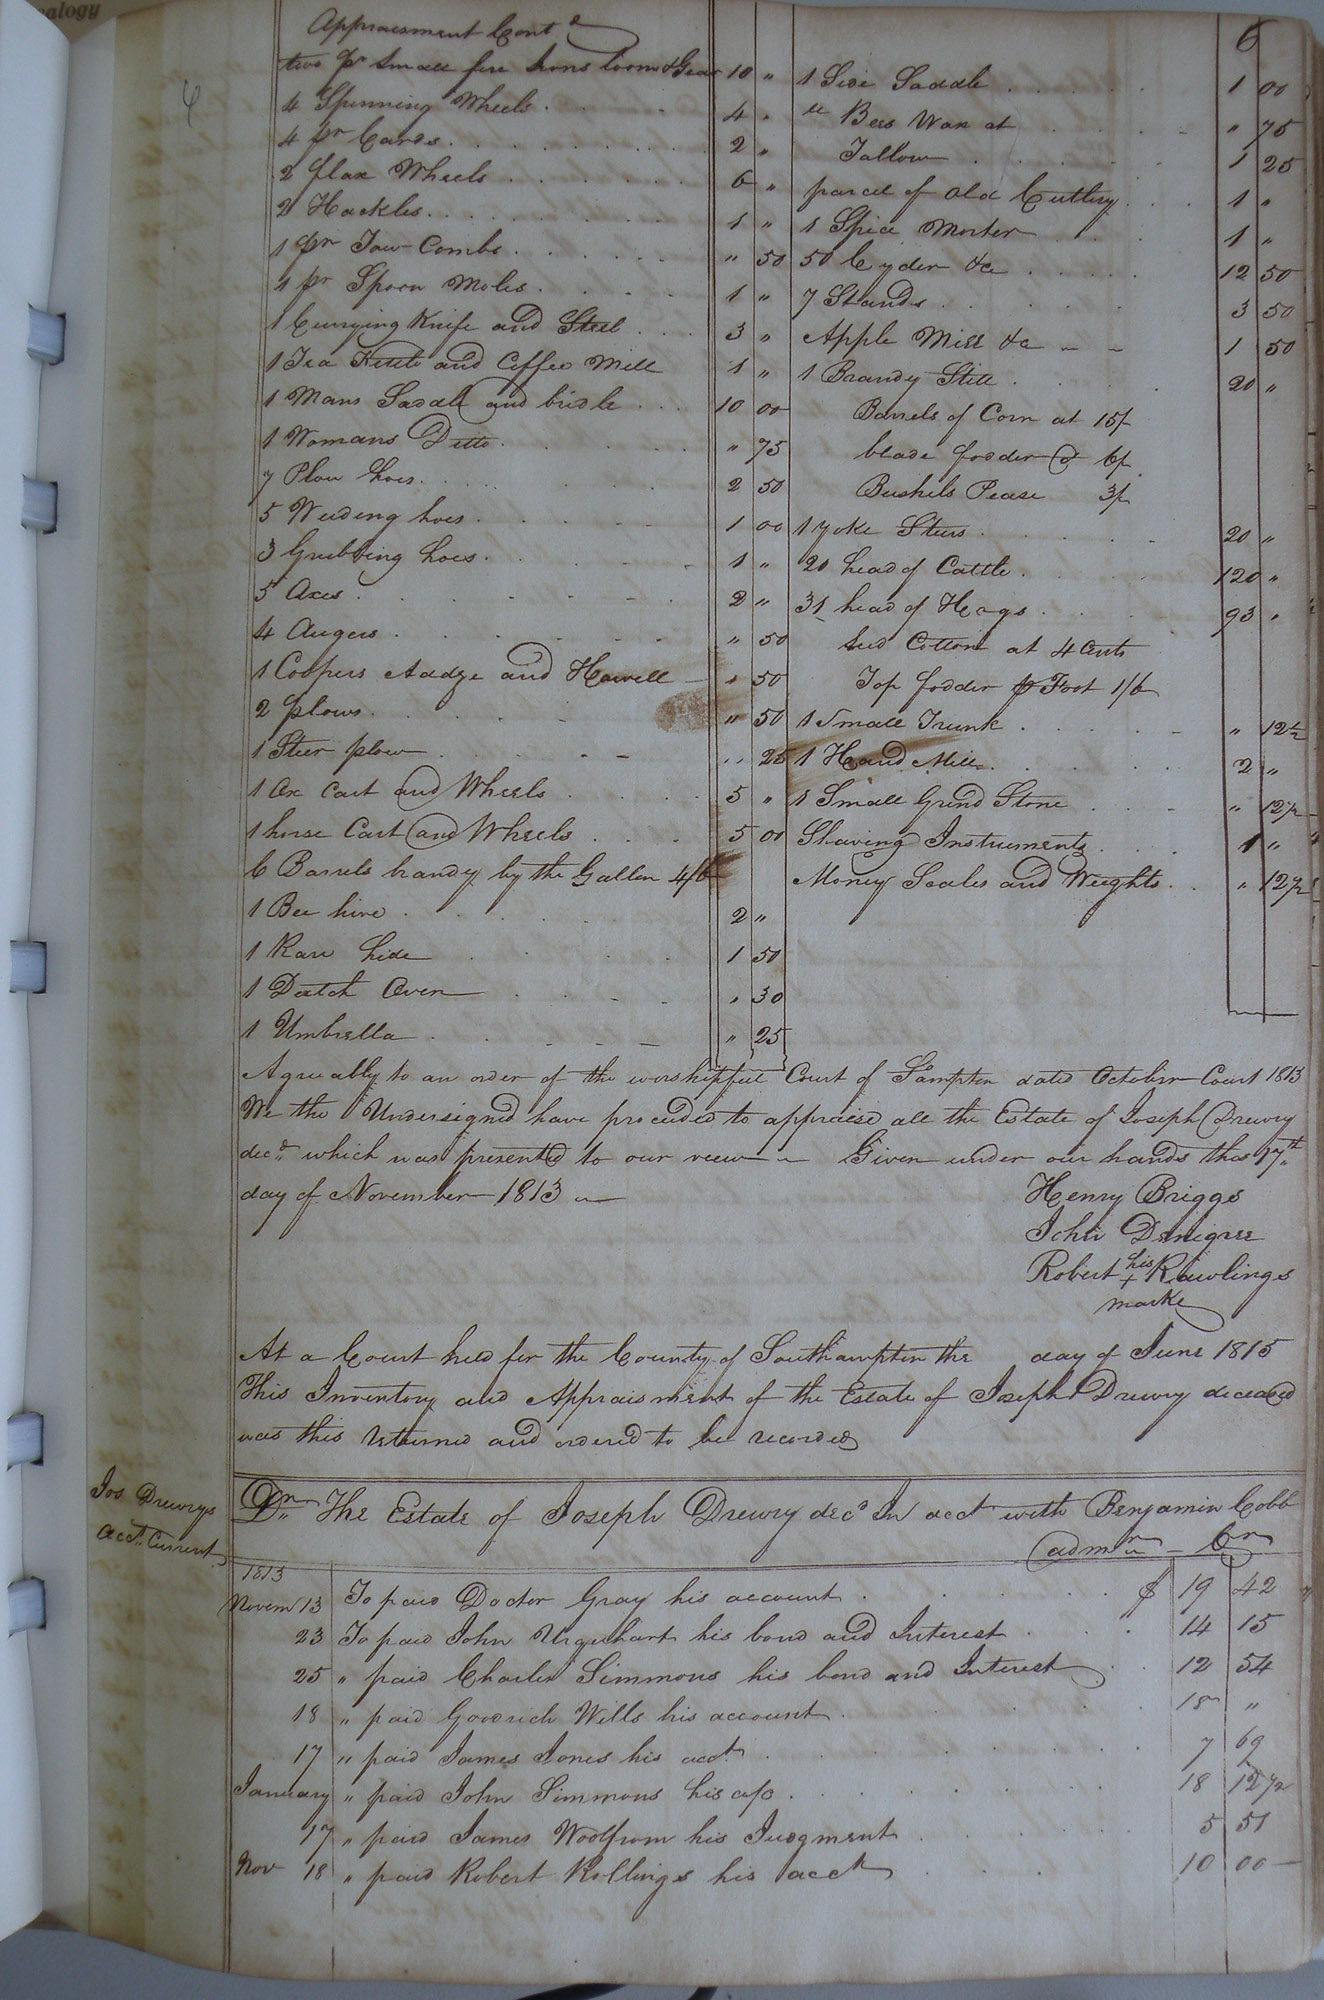 alogy
6
6
Appraisment Contd
two pr small fire Irons loom & Gear 10 "
4 Spinning Wheels 4 "
4 pr Cards 2 "
2 flax Wheels 6 "
2 Hackles 1 "
1 pr Tow Combs " 50
1 pr Spoon Moles 1 "
1 Currying Knife and Steel 3 "
1 Tea Kettle and Coffee Mill 1 "
1 Mans Saddle and bridle 10 00
1 Womans Ditto " 75
7 Plow hoes 2 50
5 Weeding hoes 1 00
3 Grubbing hoes 1 "
5 Axes 2 "
4 Augers " 50
1 Coopers Addze and Howell " 50
2 plows " 50
1 Steer plow " 25
1 Ox Cart and Wheels 5 "
1 horse Cart and Wheels 5 00
6 Barrels brandy by the Gallon 4/6
1 Bee hive 2 "
1 Raw hide 1 50
1 Dutch Oven " 30
1 Umbrella " 25
1 Side Saddle 1 00
Bees Wax at " 75
Tallow 1 25
parcel of old Cutlery 1 "
1 Spice Morter 1 "
50 Cyder &c 12 50
7 Stands 3 50
Apple Mill &c 1 50
1 Brandy Still 20 "
Barrels of Corn at 15/
blade fodder @ 6/
Bushels Pease 3/
1 yoke Steers 20 "
20 head of Cattle 120 "
31 head of Hogs 93 "
Seed Cotton at 4 Cents
Top fodder pr Foot 1/6
1 Small Trunk " 12½
1 Hand Mill 2 "
1 Small Grind Stone " 12½
Shaving Instruments 1 "
Money Scales and Weights " 12½
Agreeably to an order of the worshipful Court of Sōmpton dated October Court 1813
We the Undersigned have proceeded to appraise all the Estate of Joseph Drewry
decd which was presented to our view Given under our hands this 17th
day of November 1813
Henry Briggs
John Denigree
Robert his + Rawlings
marke
At a Court held for the County of Southampton the day of June 1815
This Inventory and Appraisment of the Estate of Joseph Drewry deceased
was this returned and ordered to be recorded
Jos Drewrys
acct Current
Dr The Estate of Joseph Drewry decd In acct with Benjamin Cobb
admr Cr
1813
Novem 13 To paid Doctor Gray his account $ 19 42
23 To paid John Urquhart his bond and Interest 14 15
25 " paid Charles Simmons his bond and Interest 12 54
18 " paid Goodrich Wills his account 18 "
17 " paid James Jones his acct 7 69
January " paid John Simmons his a/c 18 12½
17 " paid James Woolfrom his Judgment 5 51
Nov 18 " paid Robert Rollings his acct 10 00